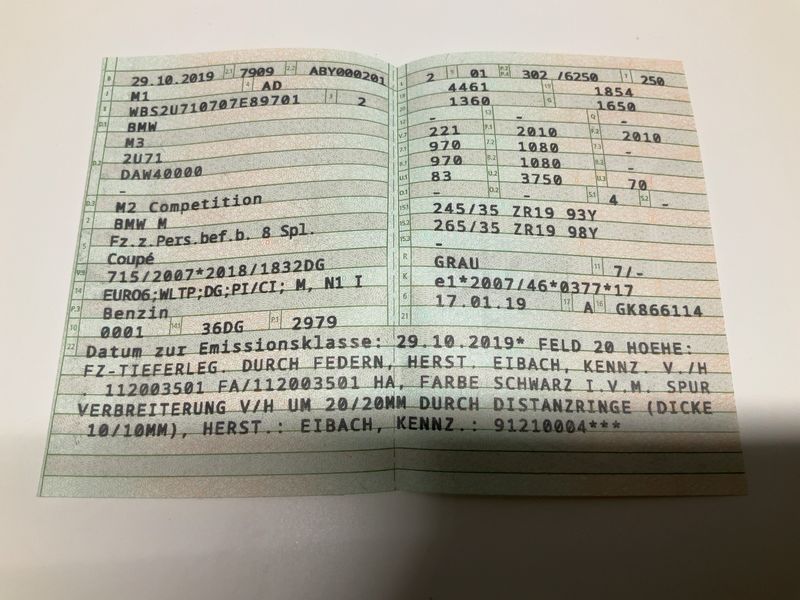 B 29.10.2019 2.1 7909 2.2 ABY000201
J M1 4 AD
E WBS2U710707E89701 3 2
D.1 BMW
M3
D.2 2U71
DAW40000
-
D.3 M2 Competition
2 BMW M
5 Fz.z.Pers.bef.b. 8 Spl.
Coupé
V.9 715/2007*2018/1832DG
14 EURO6;WLTP;DG;PI/CI; M, N1 I
P.3 Benzin
10 0001 14.1 36DG P.1 2979
L 2 9 01 P.2 P.4 302 /6250 T 250
18 4461 19 1854
20 - G 1360 1650
- 12 - Q -
V.7 221 F.1 2010 F.2 2010
7.1 970 7.2 1080 7.3 -
8.1 970 8.2 1080 8.3 -
U.1 83 U.2 3750 U.3 70
O.1 - O.2 - S.1 4 S.2 -
15.1 245/35 ZR19 93Y
15.2 265/35 ZR19 98Y
15.3 -
R GRAU 11 7/-
K e1*2007/46*0377*17
6 17.01.19 17 A 16 GK866114
21
22 Datum zur Emissionsklasse: 29.10.2019* FELD 20 HOEHE:
FZ-TIEFERLEG. DURCH FEDERN, HERST. EIBACH, KENNZ. V./H
. 112003501 FA/112003501 HA, FARBE SCHWARZ I.V.M. SPUR
VERBREITERUNG V/H UM 20/20MM DURCH DISTANZRINGE (DICKE
10/10MM), HERST.: EIBACH, KENNZ.: 91210004***